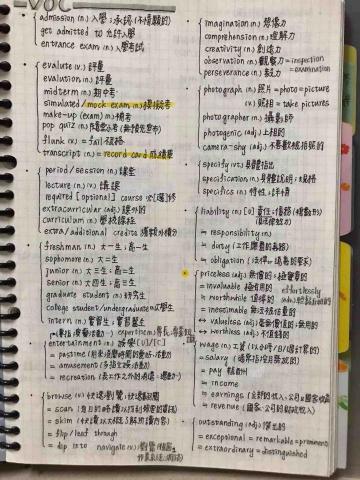 VOC
admission (n.) 入學;承認(不情願的)
get admitted to 允許入學
entrance exam (n.) 入學考試
evalute (v.) 評量
evalution (n.) 評量
midterm (n.) 期中考
simulated/mock exam (n.) 模擬考
make-up (exam) (n.) 補考
pop quiz (n.) 隨堂小考(無預先宣布)
flunk (v.) = fail 被當
transcript (n.) = record card 成績單
period/session (n.) 課堂
lecture (n.) (v.) 講課
required [optional] course 必[選]修
extracurricular (adj.) 課外的
curriculum (n.) 學校課程
extra/additional credits 獲額外積分
freshman (n.) 大一生;高一生
sophomore (n.) 大二生
junior (n.) 大三生;高二生
senior (n.) 大四生;高三生
graduate student (n.) 研究生
college student/undergraduate 大學生
intern (n.) 實習生;實習醫生
expertise (n.) 專長,專業知識
entertainment (n.) 娛樂 [U]/[C]
= pastime
= amusement
= recreation
browse (v.) 快速瀏覽;快速翻閱
= scan
= skim
= flip/leaf through
= dip into
navigate (v.) 瀏覽
imagination (n.) 想像力
comprehension (n.) 理解力
creativity (n.) 創造力
observation (n.) 觀察力 = inspection
= examination
perseverance (n.) 毅力
photograph (n.) 照片 = photo = picture
(v.) 照相 = take pictures
photographer (n.) 攝影師
photogenic (adj.) 上相的
camera-shy (adj.) 不喜歡被拍照的
specify (v.) 具體指出
specification (n.) 具體說明;規格
specifics (n.) 特性;詳情
liability (n.) [U] 責任;債務
= responsibility (n.)
= duty
= obligation
priceless (adj.) 無價的;極寶貴的
= invaluable 極有用的
effortlessly
= worthwhile 值得的
= inestimable 無法被估量的
↔ valueless (adj.) 毫無價值的;無用的
↔ worthless (adj.) 不值錢的
wage (n.) 工資
= salary
= pay
= income
= earnings
= revenue
outstanding (adj.) 傑出的
= exceptional = remarkable = prominent
= extraordinary = distinguished